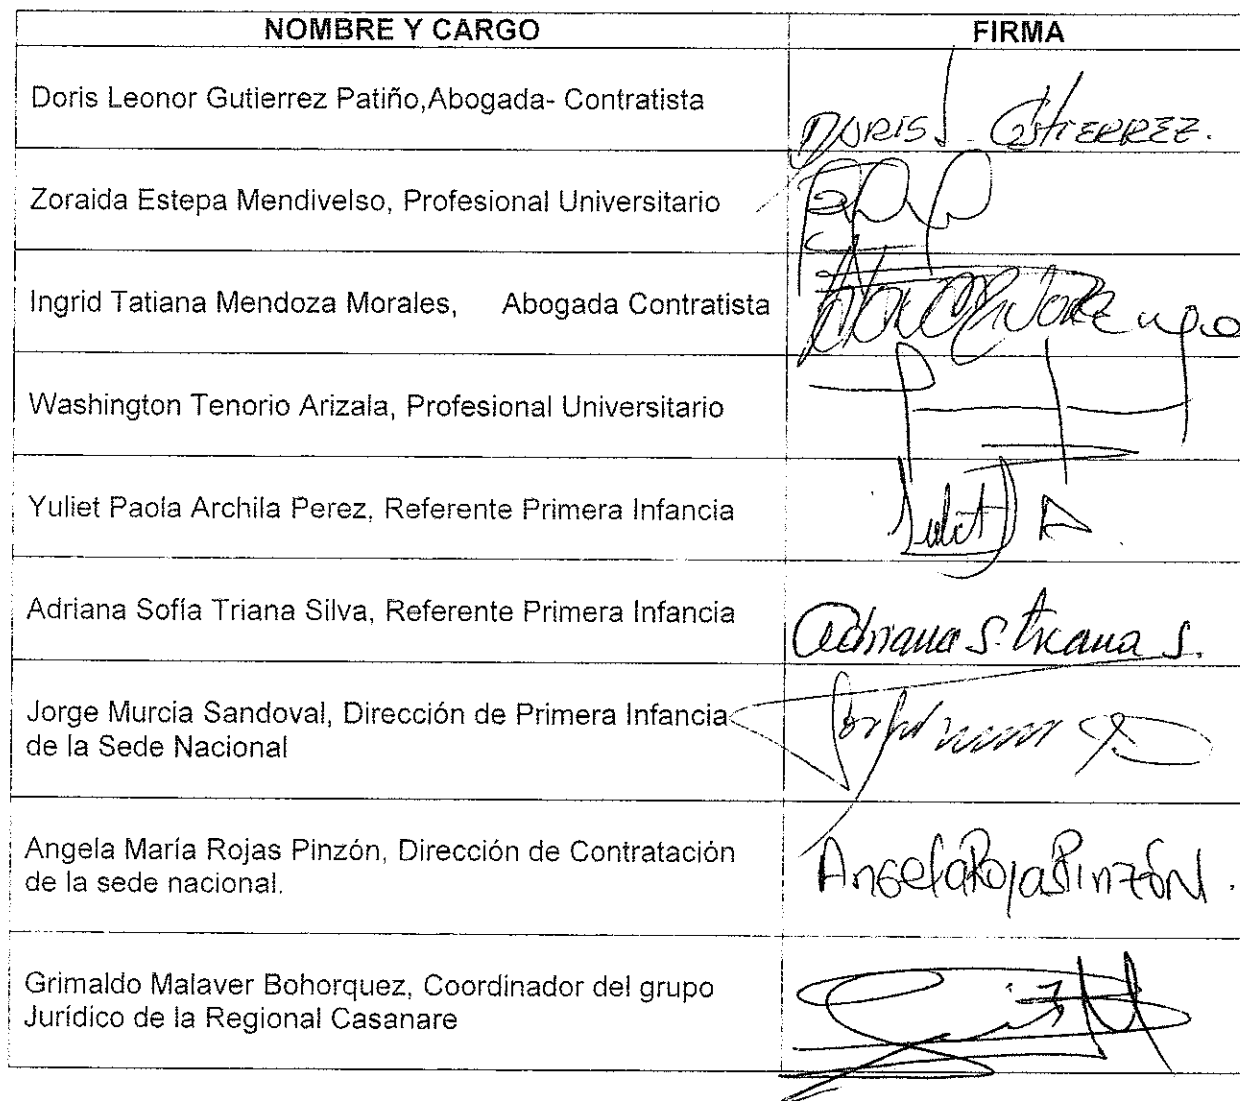 NOMBRE Y CARGO FIRMA
Doris Leonor Gutierrez Patiño,Abogada- Contratista
DORIS L GUTIERREZ.
Zoraida Estepa Mendivelso, Profesional Universitario
Ingrid Tatiana Mendoza Morales, Abogada Contratista
Washington Tenorio Arizala, Profesional Universitario
Yuliet Paola Archila Perez, Referente Primera Infancia
Yuliet A
Adriana Sofía Triana Silva, Referente Primera Infancia
Adriana S. Triana S.
Jorge Murcia Sandoval, Dirección de Primera Infancia
de la Sede Nacional
Angela María Rojas Pinzón, Dirección de Contratación
de la sede nacional.
Angela Rojas Pinzón.
Grimaldo Malaver Bohorquez, Coordinador del grupo
Jurídico de la Regional Casanare